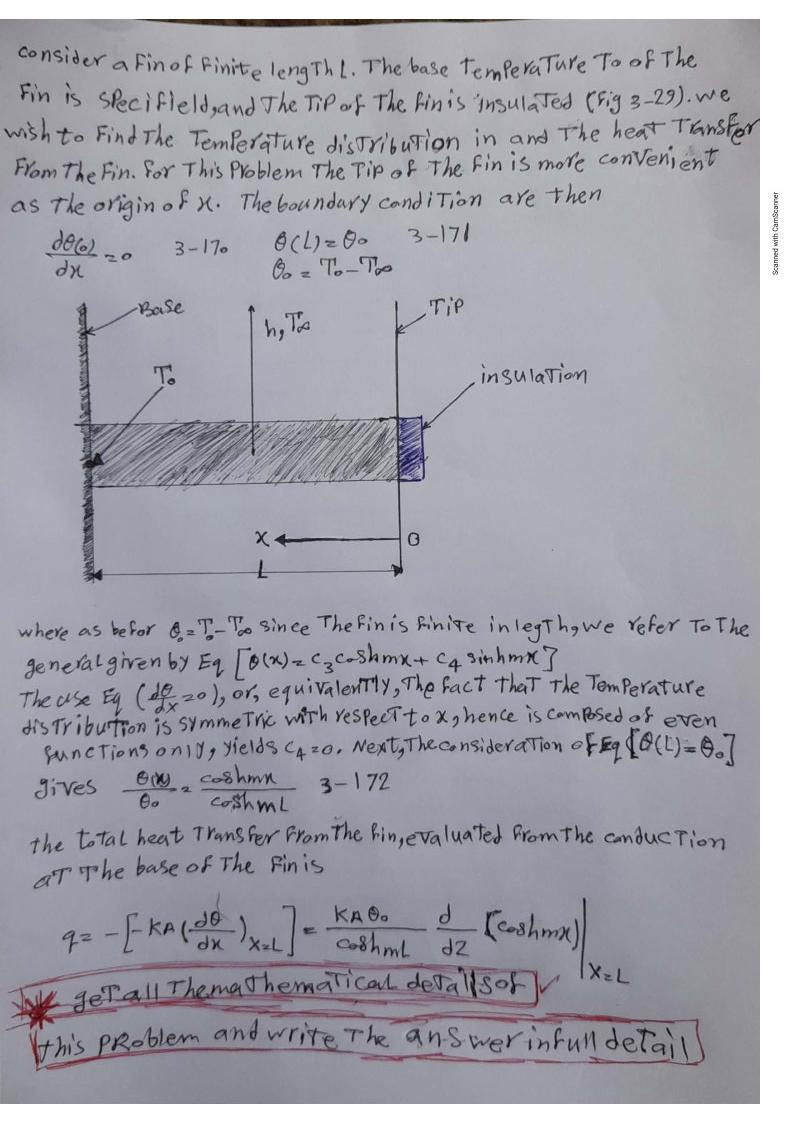 Consider a Fin of Finite length L. The base temperature To of The
Fin is specifield, and The Tip of The fin is insulated (Fig 3-29). we
wish to Find The Temperature distribution in and The heat Transfer
From The Fin. For This Problem The Tip of The Fin is more convenient
as The origin of x. The boundary condition are then
dθ(0)/dx = 0 3-170 θ(L) = θo 3-171
θo = To - T∞
Base
Tip
h, T∞
To
insulation
x
0
L
where as befor θo = To - T∞ since The fin is finite in legth, we refer To The
general given by Eq [θ(x) = C3 coshmx + C4 sinhmx]
The use Eq (dθ/dx = 0), or, equivalently, The fact that The Temperature
distribution is symmetric with respect to x, hence is composed of even
functions only, yields C4 = 0. Next, The consideration of Eq [θ(L) = θo]
gives θ(x)/θo = coshmx/coshmL 3-172
the total heat Transfer from The fin, evaluated from The conduction
at The base of The fin is
q = -[-KA(dθ/dx)x=L] = KAθo/coshmL d/dz (coshmx)|x=L
get all The mathematical details of
this problem and write The answer in full detail
Scanned with CamScanner